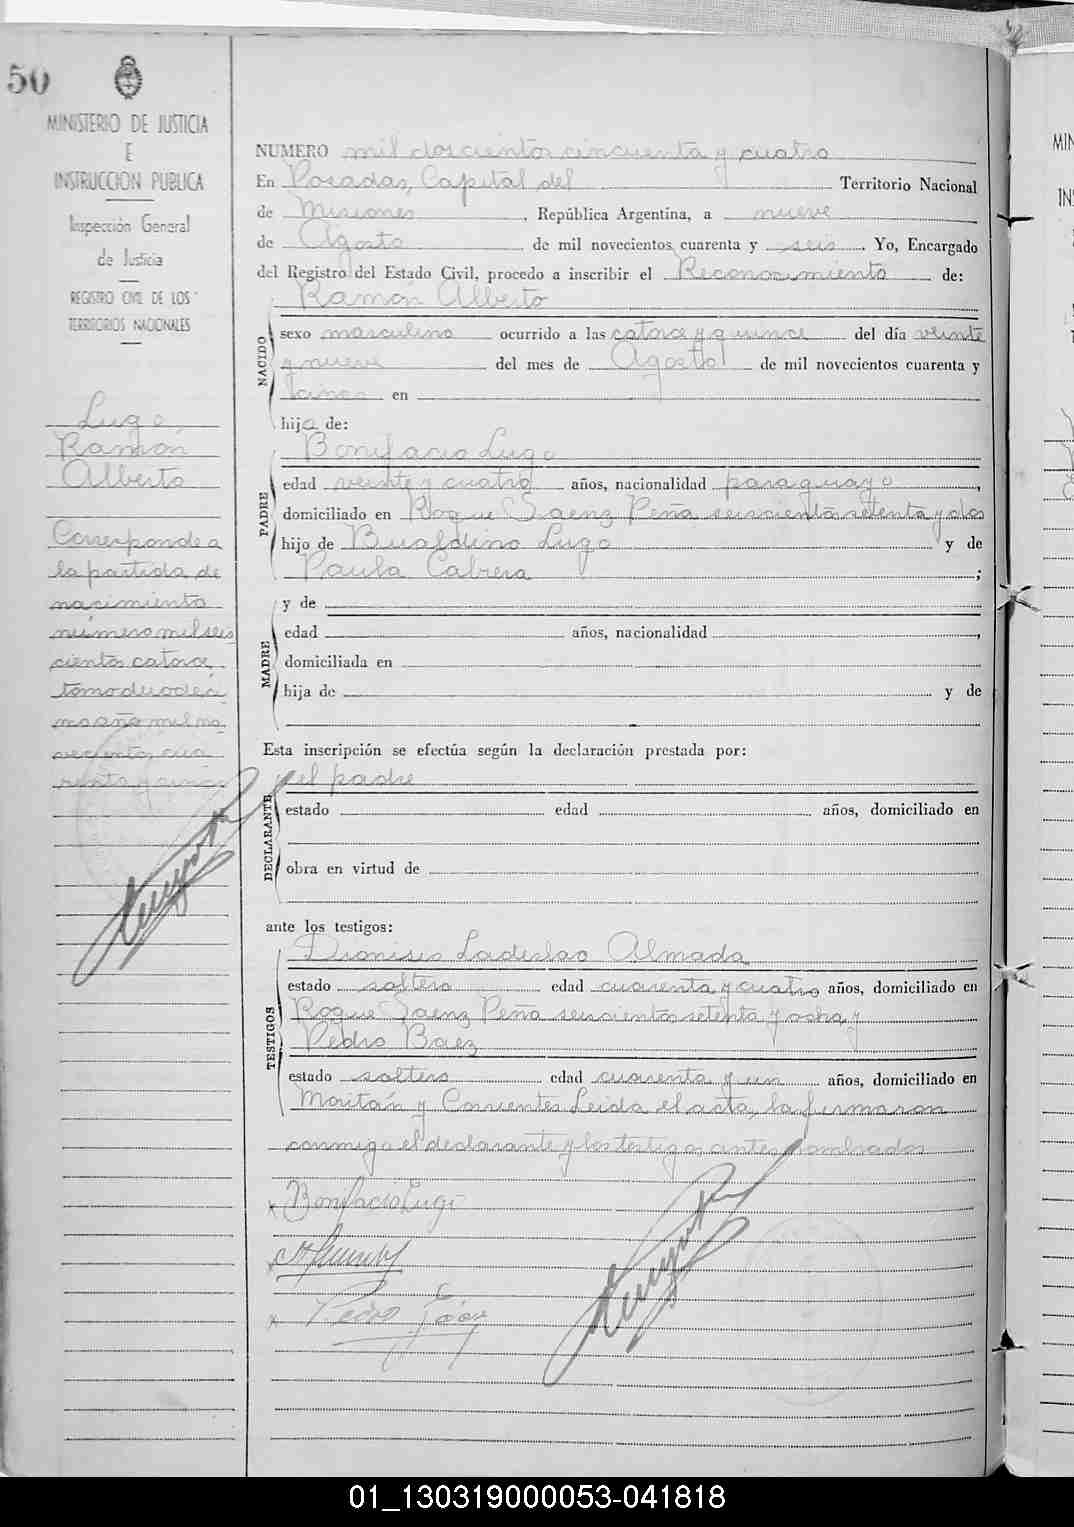 50
MINISTERIO DE JUSTICIA
E
INSTRUCCION PUBLICA
Inspección General
de Justicia
REGISTRO CIVIL DE LOS
TERRITORIOS NACIONALES
Lugo,
Ramón
Alberto
Corresponde a
la partida de
nacimiento
número mil seis
cientos catorce,
tomo duodéci
mo año mil no
vecientos cua
renta y cinco
NUMERO mil doscientos cincuenta y cuatro
En Posadas, Capital del Territorio Nacional
de Misiones, República Argentina, a nueve
de Agosto de mil novecientos cuarenta y seis. Yo, Encargado
del Registro del Estado Civil, procedo a inscribir el Reconocimiento de:
Ramón Alberto
NACIDO
sexo masculino ocurrido a las catorce y quince del día veinte
y nueve del mes de Agosto de mil novecientos cuarenta y
cinco en
hijo de:
Bonifacio Lugo
PADRE
edad veinte y cuatro años, nacionalidad paraguayo,
domiciliado en Roque Saenz Peña seiscientos setenta y dos
hijo de Bualdino Lugo y de
Paula Cabrera;
y de
MADRE
edad años, nacionalidad,
domiciliada en
hija de y de
Esta inscripción se efectúa según la declaración prestada por:
el padre
DECLARANTE
estado edad años, domiciliado en
obra en virtud de
ante los testigos:
Dionisio Ladislao Almada
TESTIGOS
estado soltero edad cuarenta y cuatro años, domiciliado en
Roque Saenz Peña seiscientos setenta y ocho y
Pedro Baez
estado soltero edad cuarenta y un años, domiciliado en
Moritán y Corrientes Leida el acta, la firmaron
conmigo el declarante y los testigos antes nombrados
Bonifacio Lugo
Pedro Báez
01_130319000053-041818